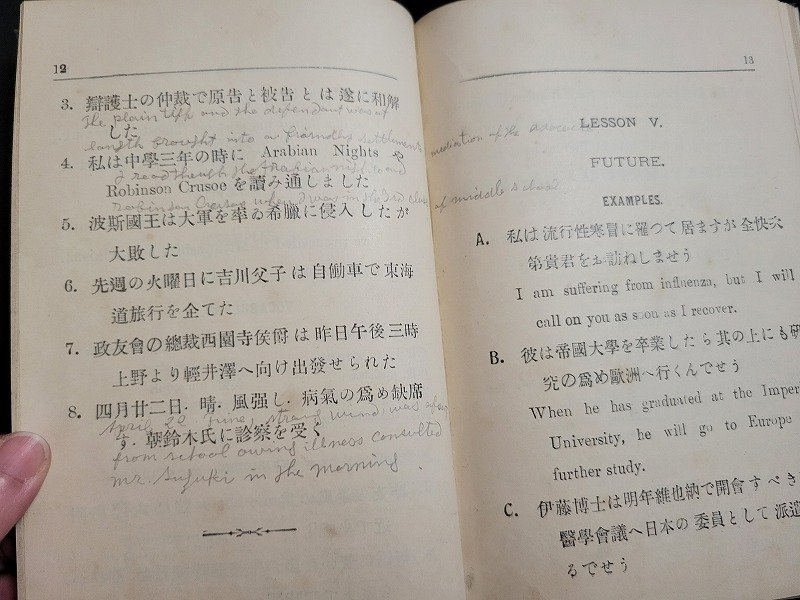 12
3. 辯護士の仲裁で原告と被告とは遂に和解
The plaintiff and the defendant was at
した
length brought into a friendly settlement
mediation of the advocate
4. 私は中學三年の時に Arabian Nights や
I read through the Arabian nights and
Robinson Crusoe を讀み通しました
Robinson Crusoe when I was in the 3rd class
of middle school
5. 波斯國王は大軍を率ゐ希臘に侵入したが
大敗した
6. 先週の火曜日に吉川父子は自働車で東海
道旅行を企てた
7. 政友會の總裁西園寺侯爵は昨日午後三時
上野より輕井澤へ向け出發せられた
8. 四月廿二日. 晴. 風强し. 病氣の爲め缺席
April 22 strong wind, was
す. 朝鈴木氏に診察を受く
from school owing illness consulted
Mr. Suzuki in the morning
13
LESSON V.
FUTURE.
EXAMPLES.
A. 私は流行性寒冒に罹つて居ますが全快次
第貴君をお訪ねしませう
I am suffering from influenza, but I will
call on you as soon as I recover.
B. 彼は帝國大學を卒業したら其の上にも研
究の爲め歐洲へ行くんでせう
When he has graduated at the Imper
University, he will go to Europe
further study.
C. 伊藤博士は明年維也納で開會すべき
醫學會議へ日本の委員として派遣
るでせう